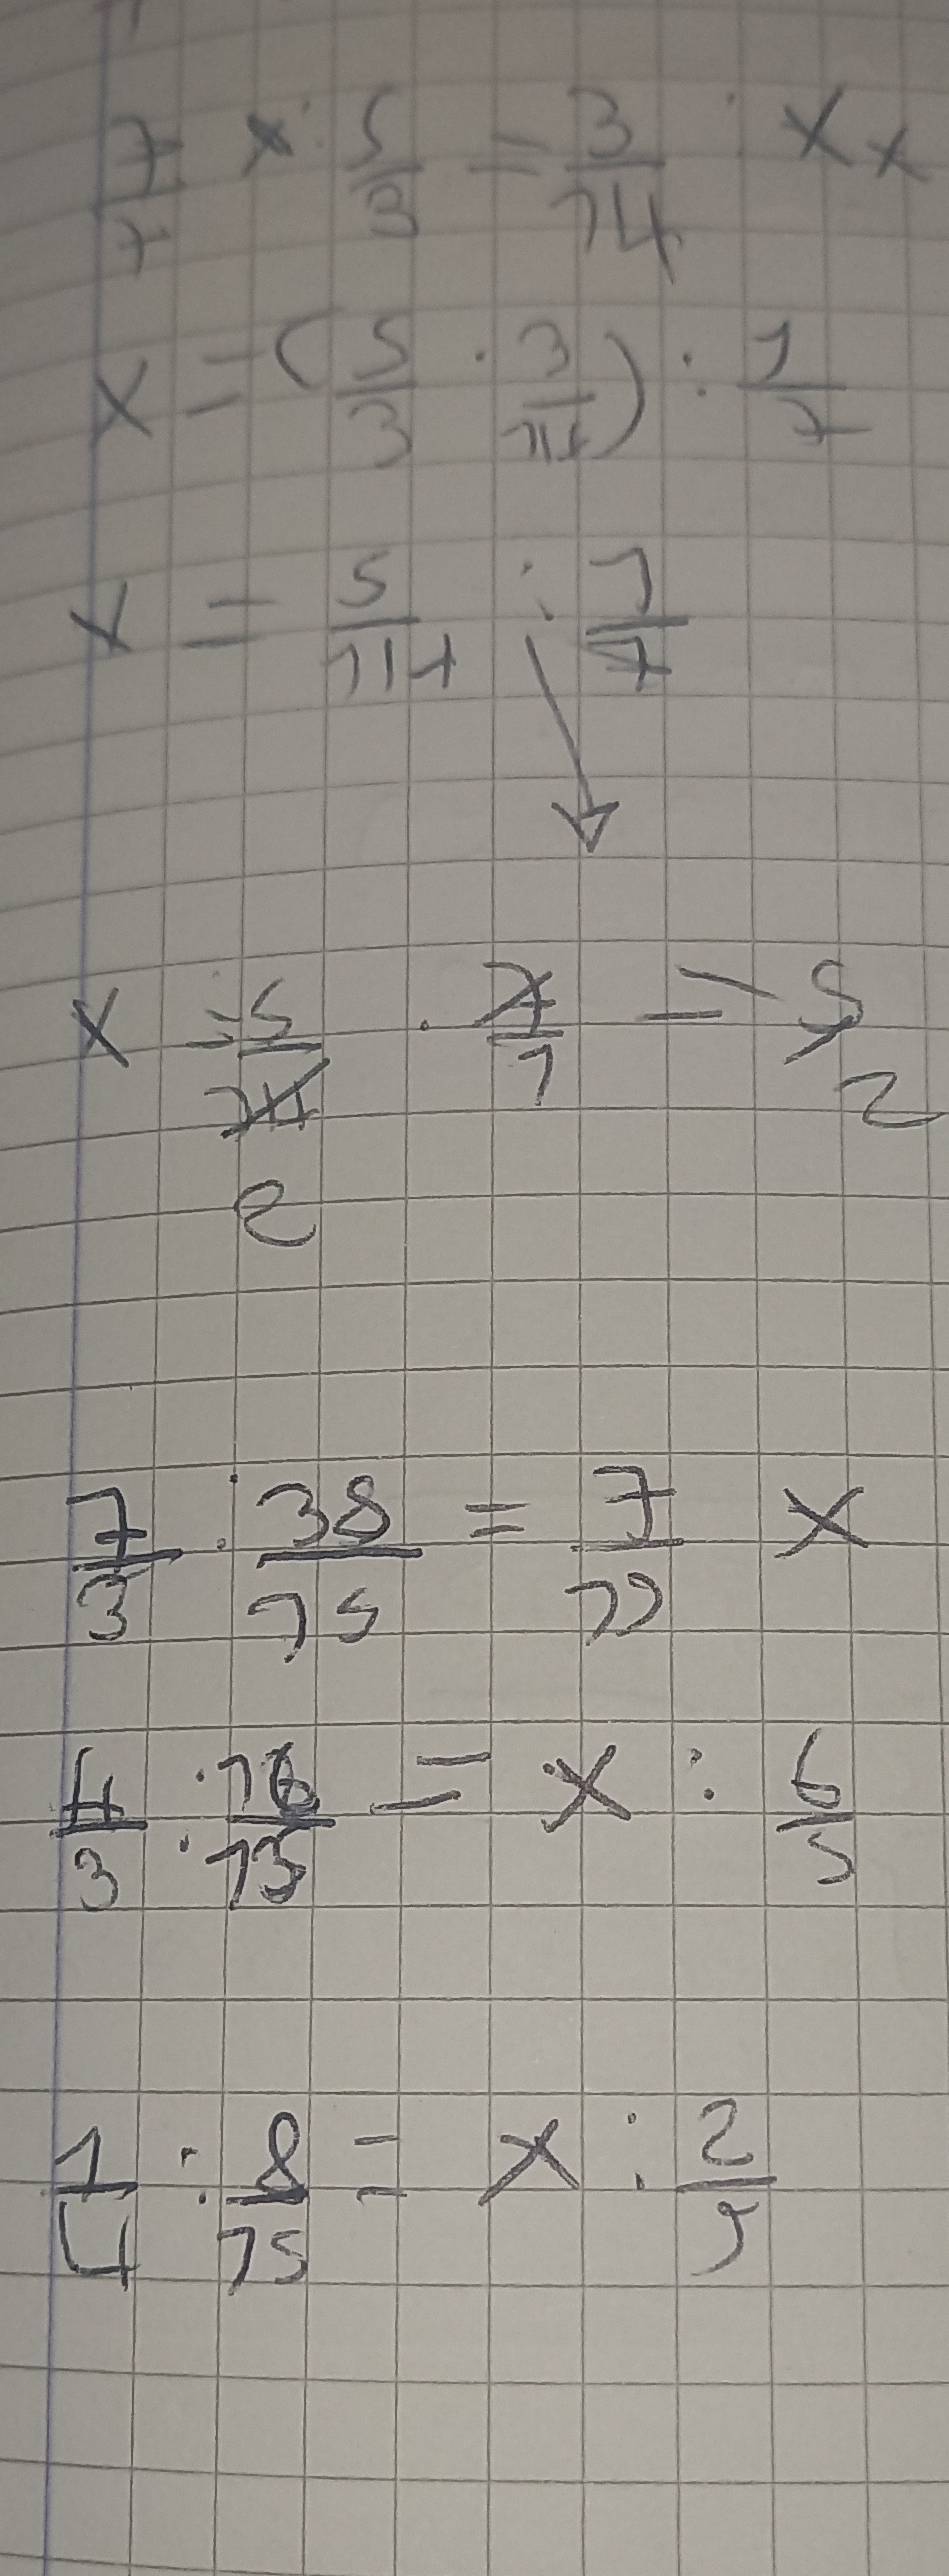 1/7 x : 5/3 = 3/14 : x x
x = (5/3 · 3/14) : 1/7
x = 5/14 : 1/7
x = 5/14 · 7/1 = 5/2
2
7/3 : 38/15 = 7/19 x
4/3 : 16/15 = x : 6/5
1/4 : 8/15 = x : 2/5